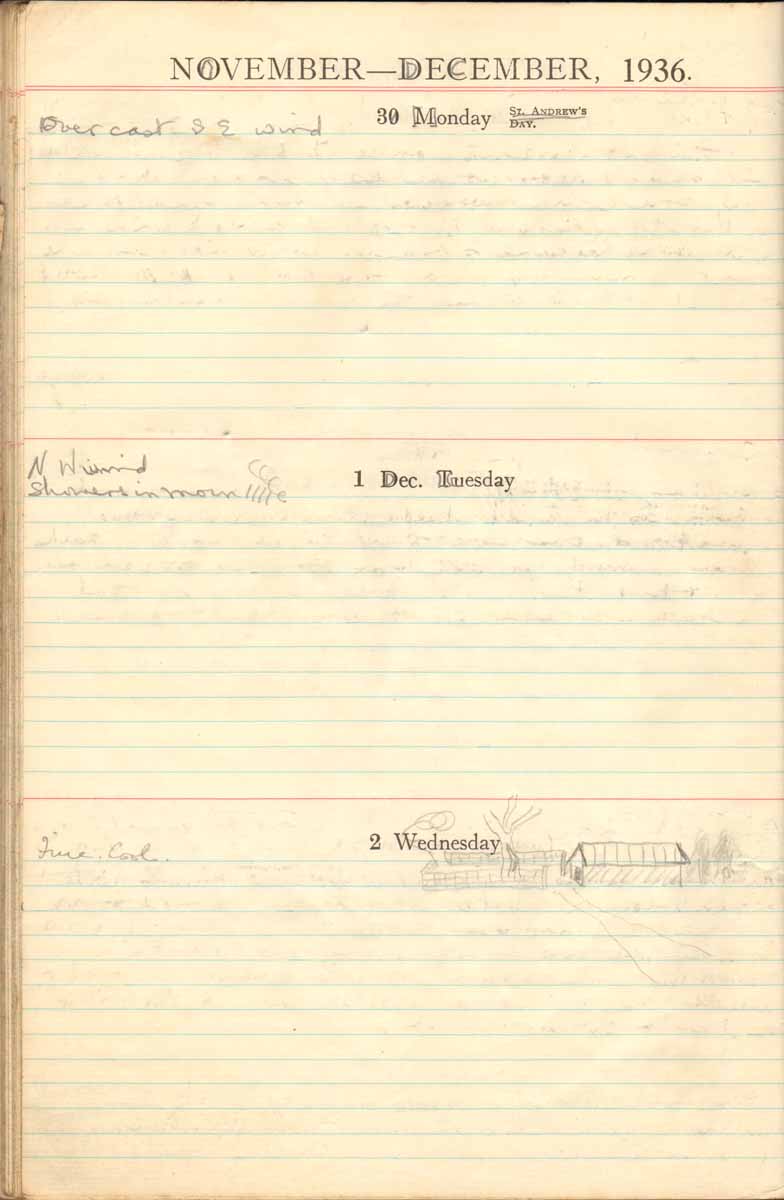 NOVEMBER—DECEMBER, 1936.
30 Monday ST. ANDREW'S
DAY.
Over cast S E wind
1 Dec. Tuesday
N Wind
Showers in morn
2 Wednesday
Fine. Cool.